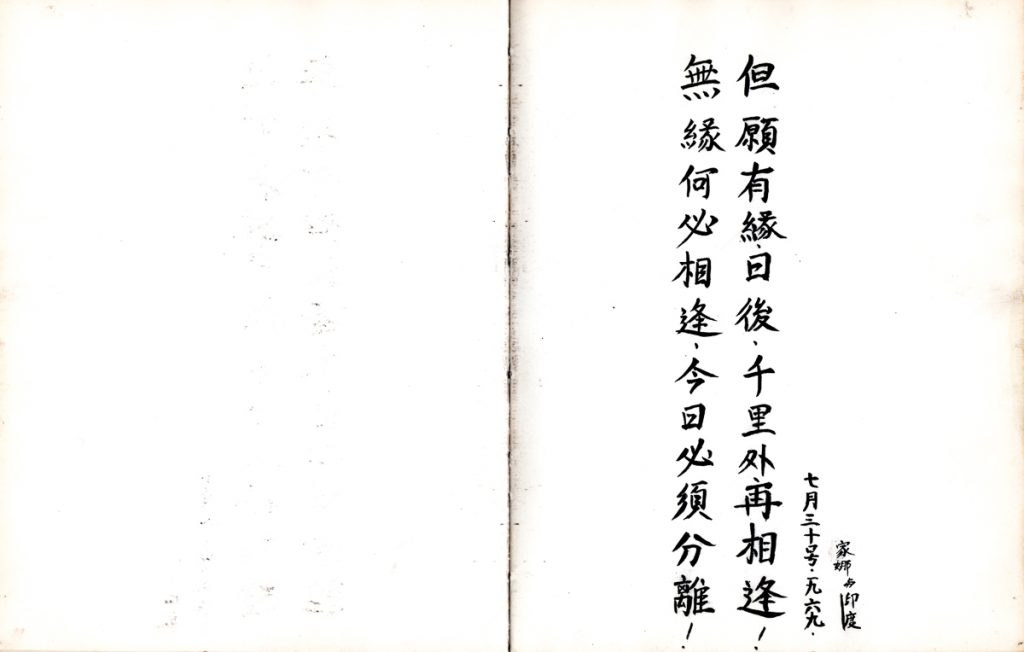 無緣何必相逢、今日必須分離！
但願有緣、日後、千里外再相逢！
七月三十号·一九六九·
家娜与印度